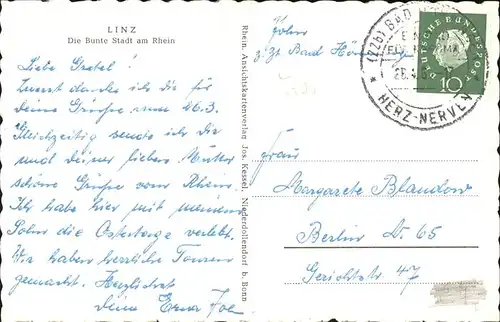 LINZ
Die Bunte Stadt am Rhein
Liebe Gretel!
Zuerst danke ich dir für
deine Grüße vom 26.3.
Gleichzeitig sende ich dir
und deiner lieben Mutter
schöne Grüße vom Rhein.
Ich habe hier mit meinem
Sohn die Ostertage verlebt.
Wir haben herrliche Touren
gemacht. Herzlichst
deine Erna
Rhein. Ansichtskartenverlag Jos. Kessel, Niederdollendorf b. Bonn
z. Zt. Bad
(22b) BAD
HERZ-NERVEN
DEUTSCHE BUNDESPOST
10
Frau
Margarete Blandow
Berlin N. 65
Gerichtstr. 47